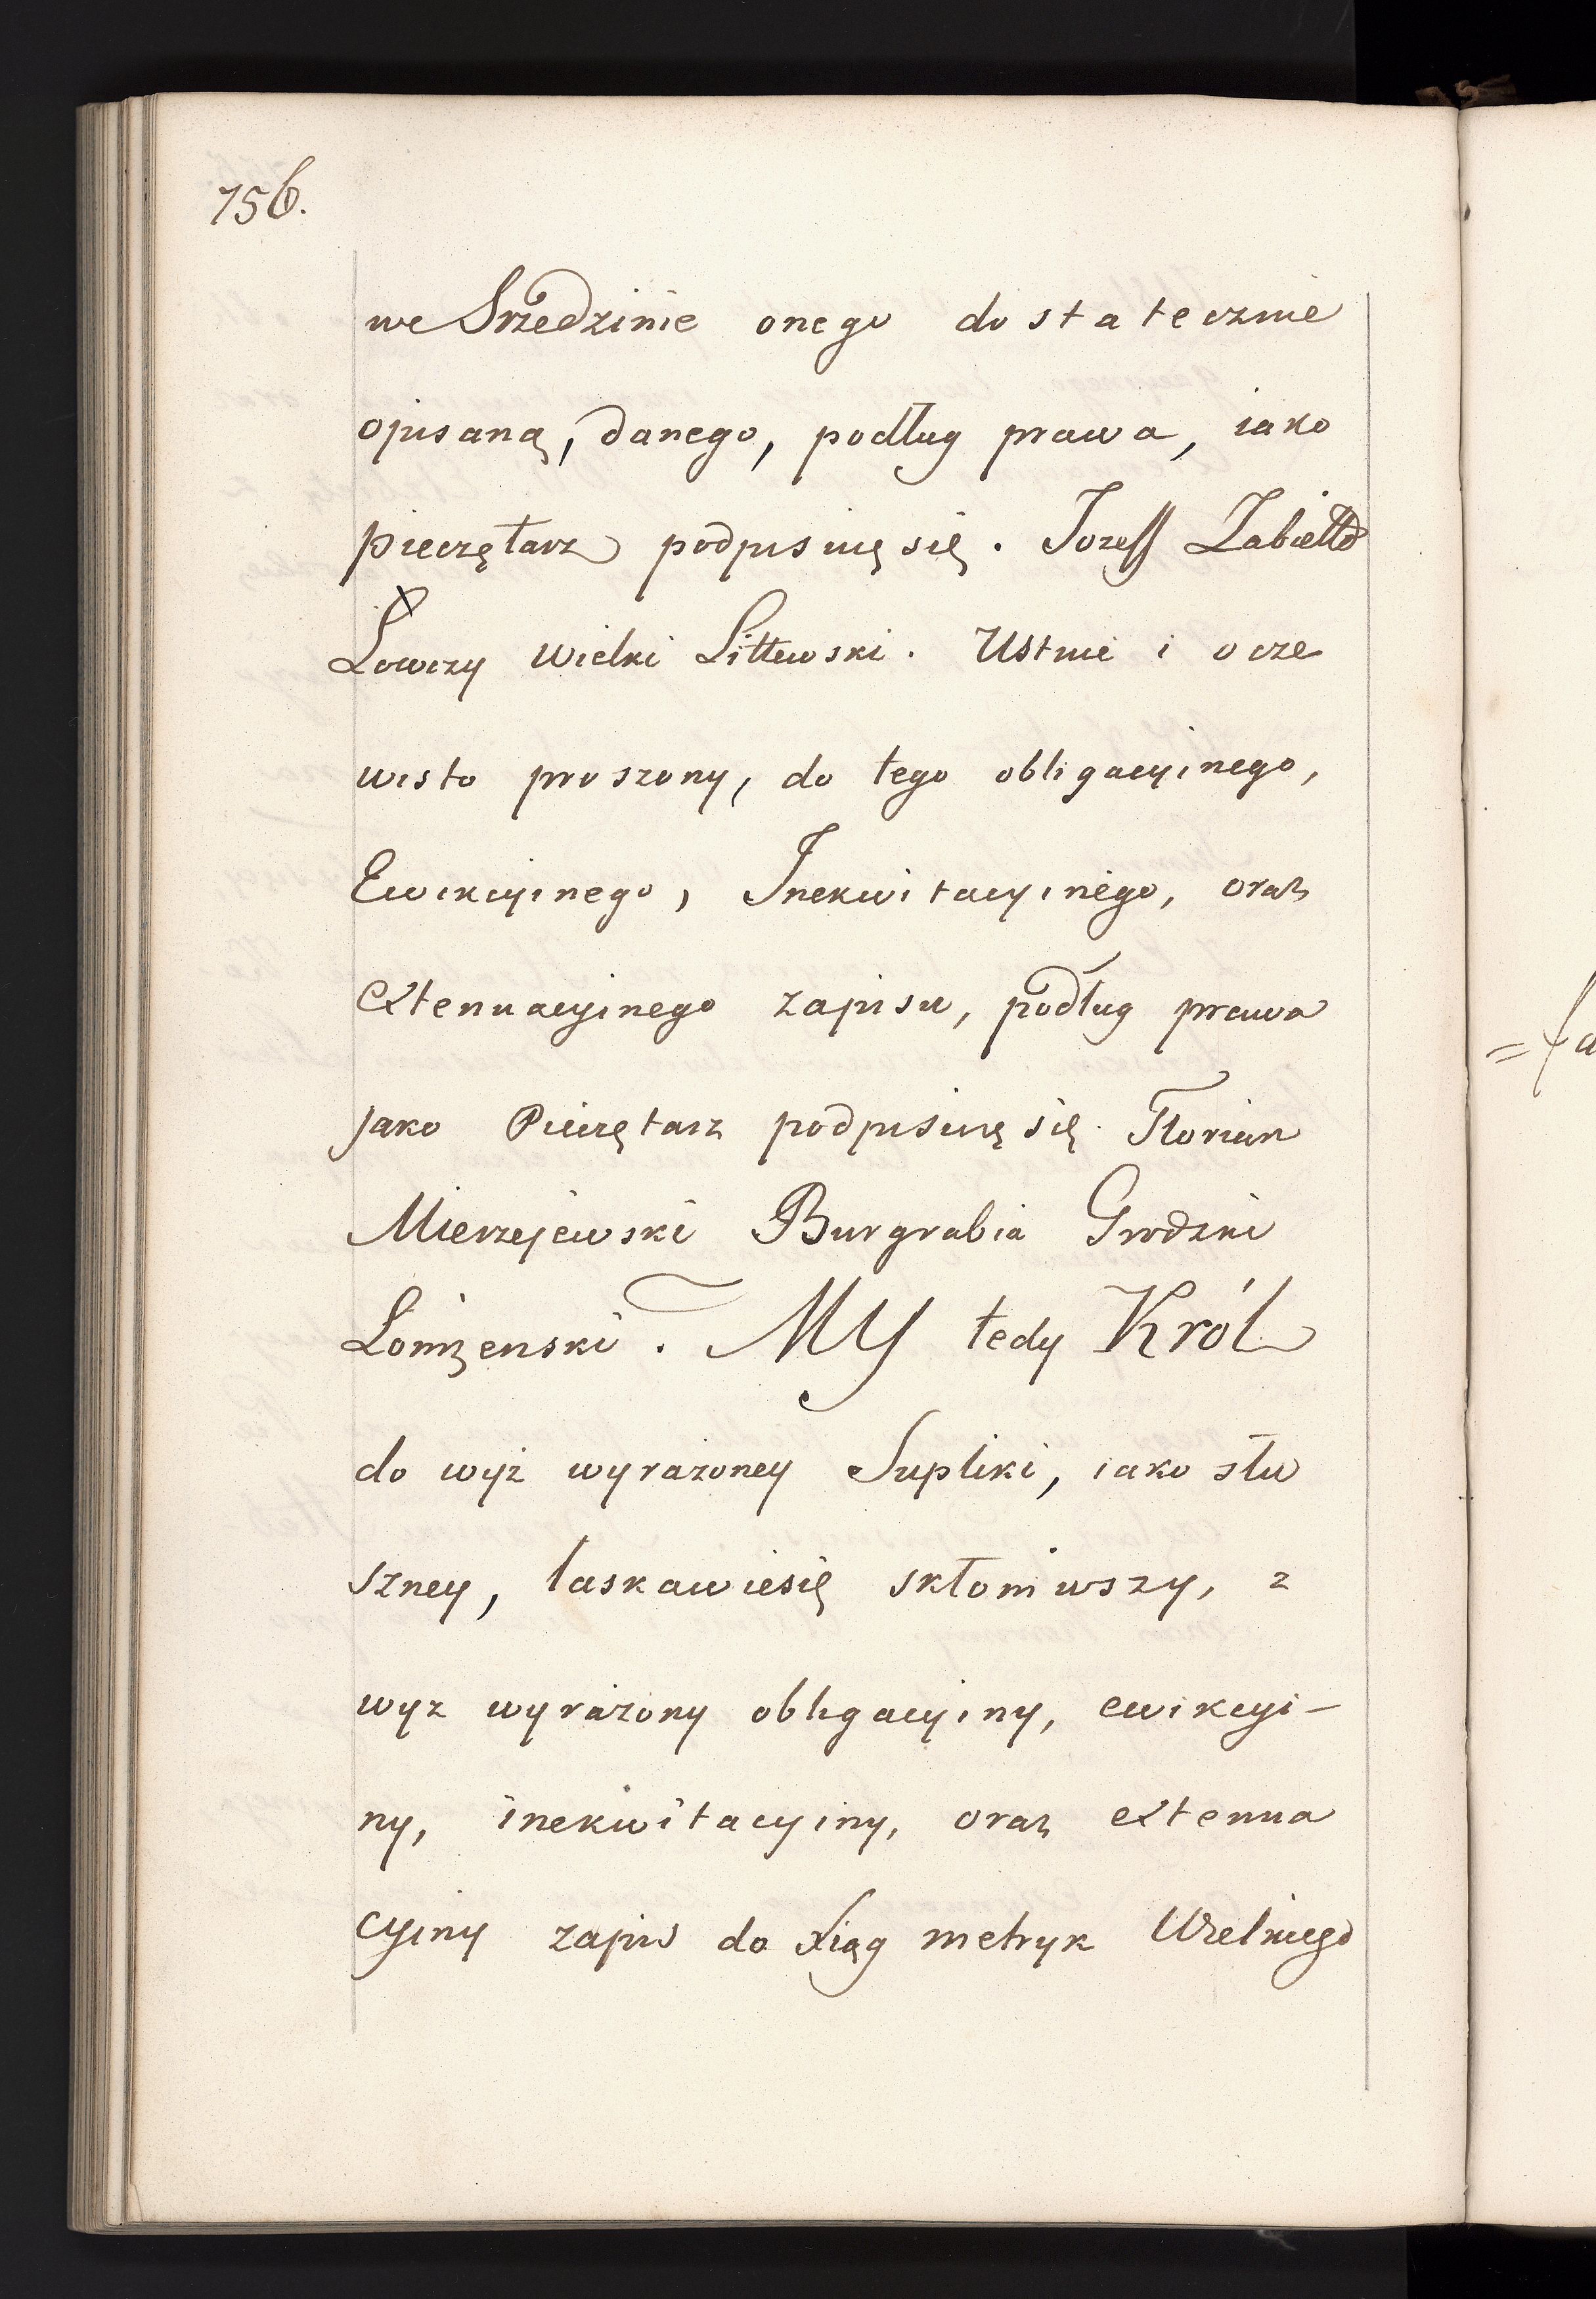 756.
we Srzedzinie onego dostatecznie
opisaną, danego, podług prawa, iako
pieczętarz podpisuię się. Jozeff Zabiełło
Łowczy Wielki Littewski. Ustnie i ocze
wisto proszony, do tego obligacyinego,
Ewikcyinego, Inekwitacyinego, oraz
extenuacyinego zapisu, podług prawa
jako Pieczętarz podpisuię się. Florian
Mierzejewski Burgrabia Grodzki
Łomzenski. MY tedy Król
do wyż wyrażoney Supliki, iako słu
szney, łaskawie się skłoniwszy, z
wyz wyrażony obligacyiny, ewikcyi-
ny, inekwitacyiny, oraz extenua
cyiny zapis do Xiąg metryk Wielkiego